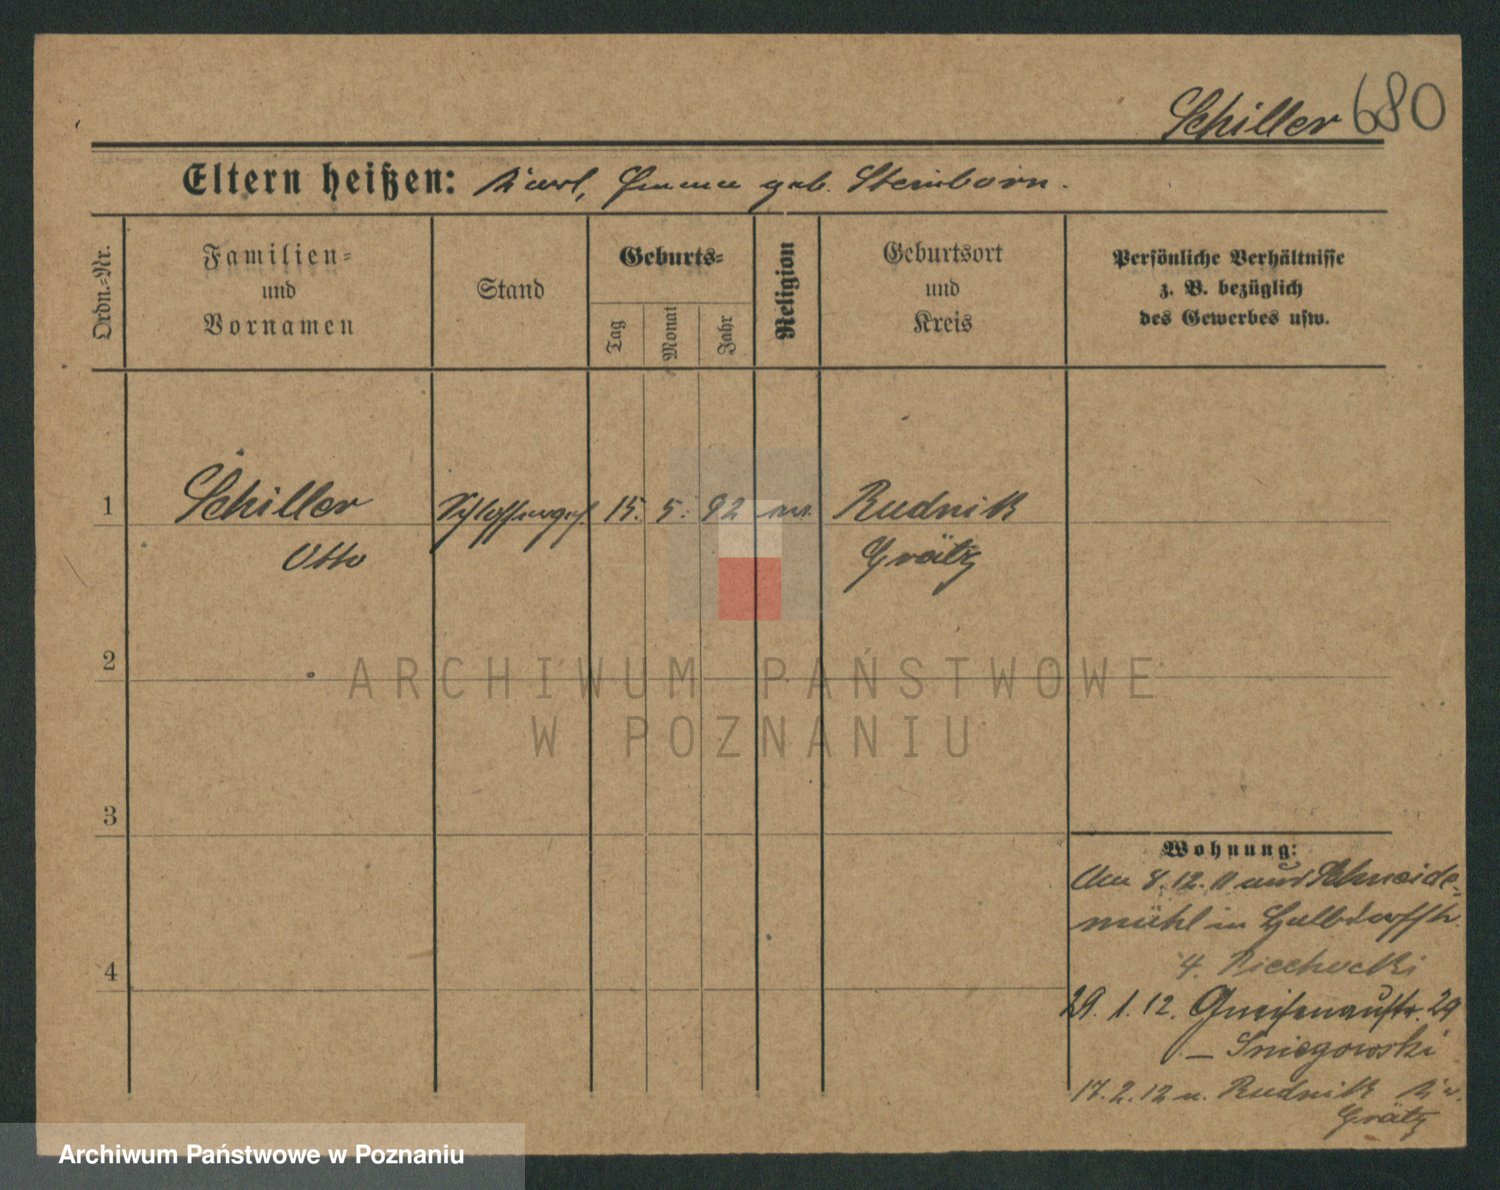 Schiller 680
Eltern heißen: Karl, Emma geb. Steinborn.
Ordn.-Nr.
Familien-
und
Vornamen
Stand
Geburts-
Tag
Monat
Jahr
Religion
Geburtsort
und
Kreis
Persönliche Verhältnisse
z. B. bezüglich
des Gewerbes usw.
1 Schiller Schlosserges. 15. 5. 92 ev. Rudnik
Otto Grätz
2
ARCHIWUM PAŃSTWOWE
W POZNANIU
3
4
Wohnung:
Am 8.12.11 aus Schneide-
mühl in Halbdorfstr.
4. Piechocki
29. 1. 12. Gneisenaustr. 29
– Sniegowski
17. 2. 12 n. Rudnik Kr.
Grätz
Archiwum Państwowe w Poznaniu